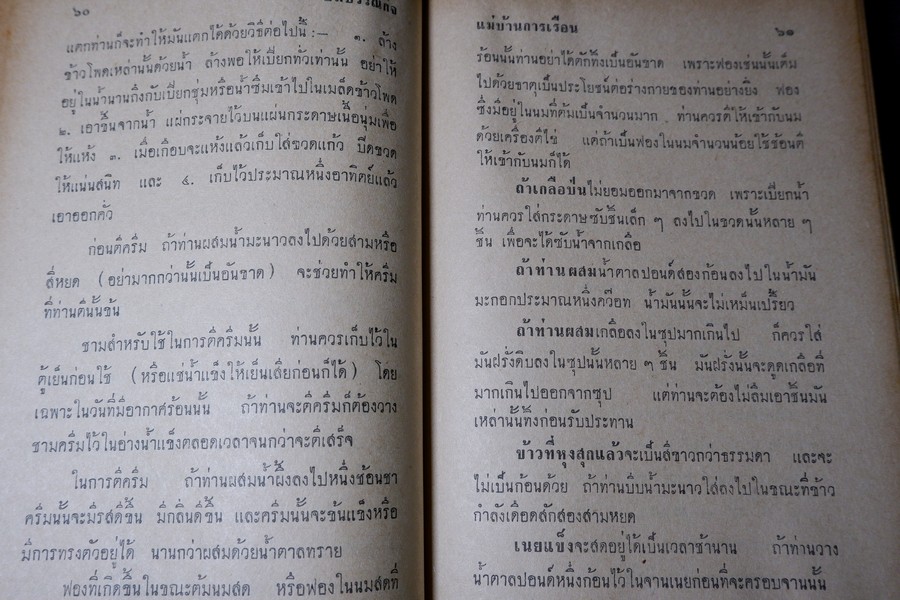 ๖๐
แตกท่านก็จะทำให้มันแตกได้ด้วยวิธีต่อไปนี้ :— ๑. ล้าง
ข้าวโพดเหล่านั้นด้วยน้ำ ล้างพอให้เปียกทั่วเท่านั้น อย่าให้
อยู่ในน้ำนานถึงกับเปียกชุ่มหรือน้ำซึมเข้าไปในเมล็ดข้าวโพด
๒. เอาขึ้นจากน้ำ แผ่กระจายไว้บนแผ่นกระดาษเนื้อนุ่มเพื่อ
ให้แห้ง ๓. เมื่อเกือบจะแห้งแล้วเก็บใส่ขวดแก้ว ปิดขวด
ให้แน่นสนิท และ ๔. เก็บไว้ประมาณหนึ่งอาทิตย์แล้ว
เอาออกคั่ว
ก่อนตีครีม ถ้าท่านผสมน้ำมะนาวลงไปด้วยสามหรือ
สี่หยด (อย่ามากกว่านั้นเป็นอันขาด) จะช่วยทำให้ครีม
ที่ท่านตีนั้นข้น
ชามสำหรับใช้ในการตีครีมนั้น ท่านควรเก็บไว้ใน
ตู้เย็นก่อนใช้ (หรือแช่น้ำแข็งให้เย็นเสียก่อนก็ได้) โดย
เฉพาะในวันที่มีอากาศร้อนนั้น ถ้าท่านจะตีครีมก็ต้องวาง
ชามครีมไว้ในอ่างน้ำแข็งตลอดเวลาจนกว่าจะตีเสร็จ
ในการตีครีม ถ้าท่านผสมน้ำผึ้งลงไปหนึ่งช้อนชา
ครีมนั้นจะมีรสดีขึ้น มีกลิ่นดีขึ้น และครีมนั้นจะข้นแข็งหรือ
มีการทรงตัวอยู่ได้ นานกว่าผสมด้วยน้ำตาลทราย
ฟองที่เกิดขึ้นในขณะต้มนมสด หรือฟองในนมสดที่
แม่บ้านการเรือน ๖๑
ร้อนนั้นท่านอย่าได้ตักทิ้งเป็นอันขาด เพราะฟองเช่นนั้นเต็ม
ไปด้วยธาตุเป็นประโยชน์ต่อร่างกายของท่านอย่างยิ่ง ฟอง
ซึ่งมีอยู่ในนมที่ต้มเป็นจำนวนมาก ท่านควรตีให้เข้ากับนม
ด้วยเครื่องตีไข่ แต่ถ้าเป็นฟองในนมจำนวนน้อยใช้ช้อนตี
ให้เข้ากับนมก็ได้
ถ้าเกลือป่นไม่ยอมออกมาจากขวด เพราะเปียกน้ำ
ท่านควรใส่กระดาษซับชิ้นเล็ก ๆ ลงไปในขวดนั้นหลาย ๆ
ชิ้น เพื่อจะได้ซับน้ำจากเกลือ
ถ้าท่านผสมน้ำตาลปอนด์สองก้อนลงไปในน้ำมัน
มะกอกประมาณหนึ่งคว๊อท น้ำมันนั้นจะไม่เหม็นเปรี้ยว
ถ้าท่านผสมเกลือลงในซุปมากเกินไป ก็ควรใส่
มันฝรั่งดิบลงในซุปนั้นหลาย ๆ ชิ้น มันฝรั่งนั้นจะดูดเกลือที่
มากเกินไปออกจากซุป แต่ท่านจะต้องไม่ลืมเอาชิ้นมัน
เหล่านั้นทิ้งก่อนรับประทาน
ข้าวที่หุงสุกแล้วจะเป็นสีขาวกว่าธรรมดา และจะ
ไม่เป็นก้อนด้วย ถ้าท่านบีบน้ำมะนาวใส่ลงไปในขณะที่ข้าว
กำลังเดือดสักสองสามหยด
เนยแข็งจะสดอยู่ได้เป็นเวลาช้านาน ถ้าท่านวาง
น้ำตาลปอนด์หนึ่งก้อนไว้ในจานเนยก่อนที่จะครอบจานนั้น